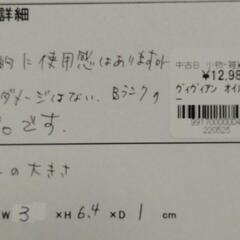 詳細
的に使用感はありますが
中古B 小物・雑
¥12,98
ダメージはない、Bランクの
ヴィヴィアン オイル
品です。
991700000004
220525
の大きさ
W 3 × H 6.4 × D 1 cm